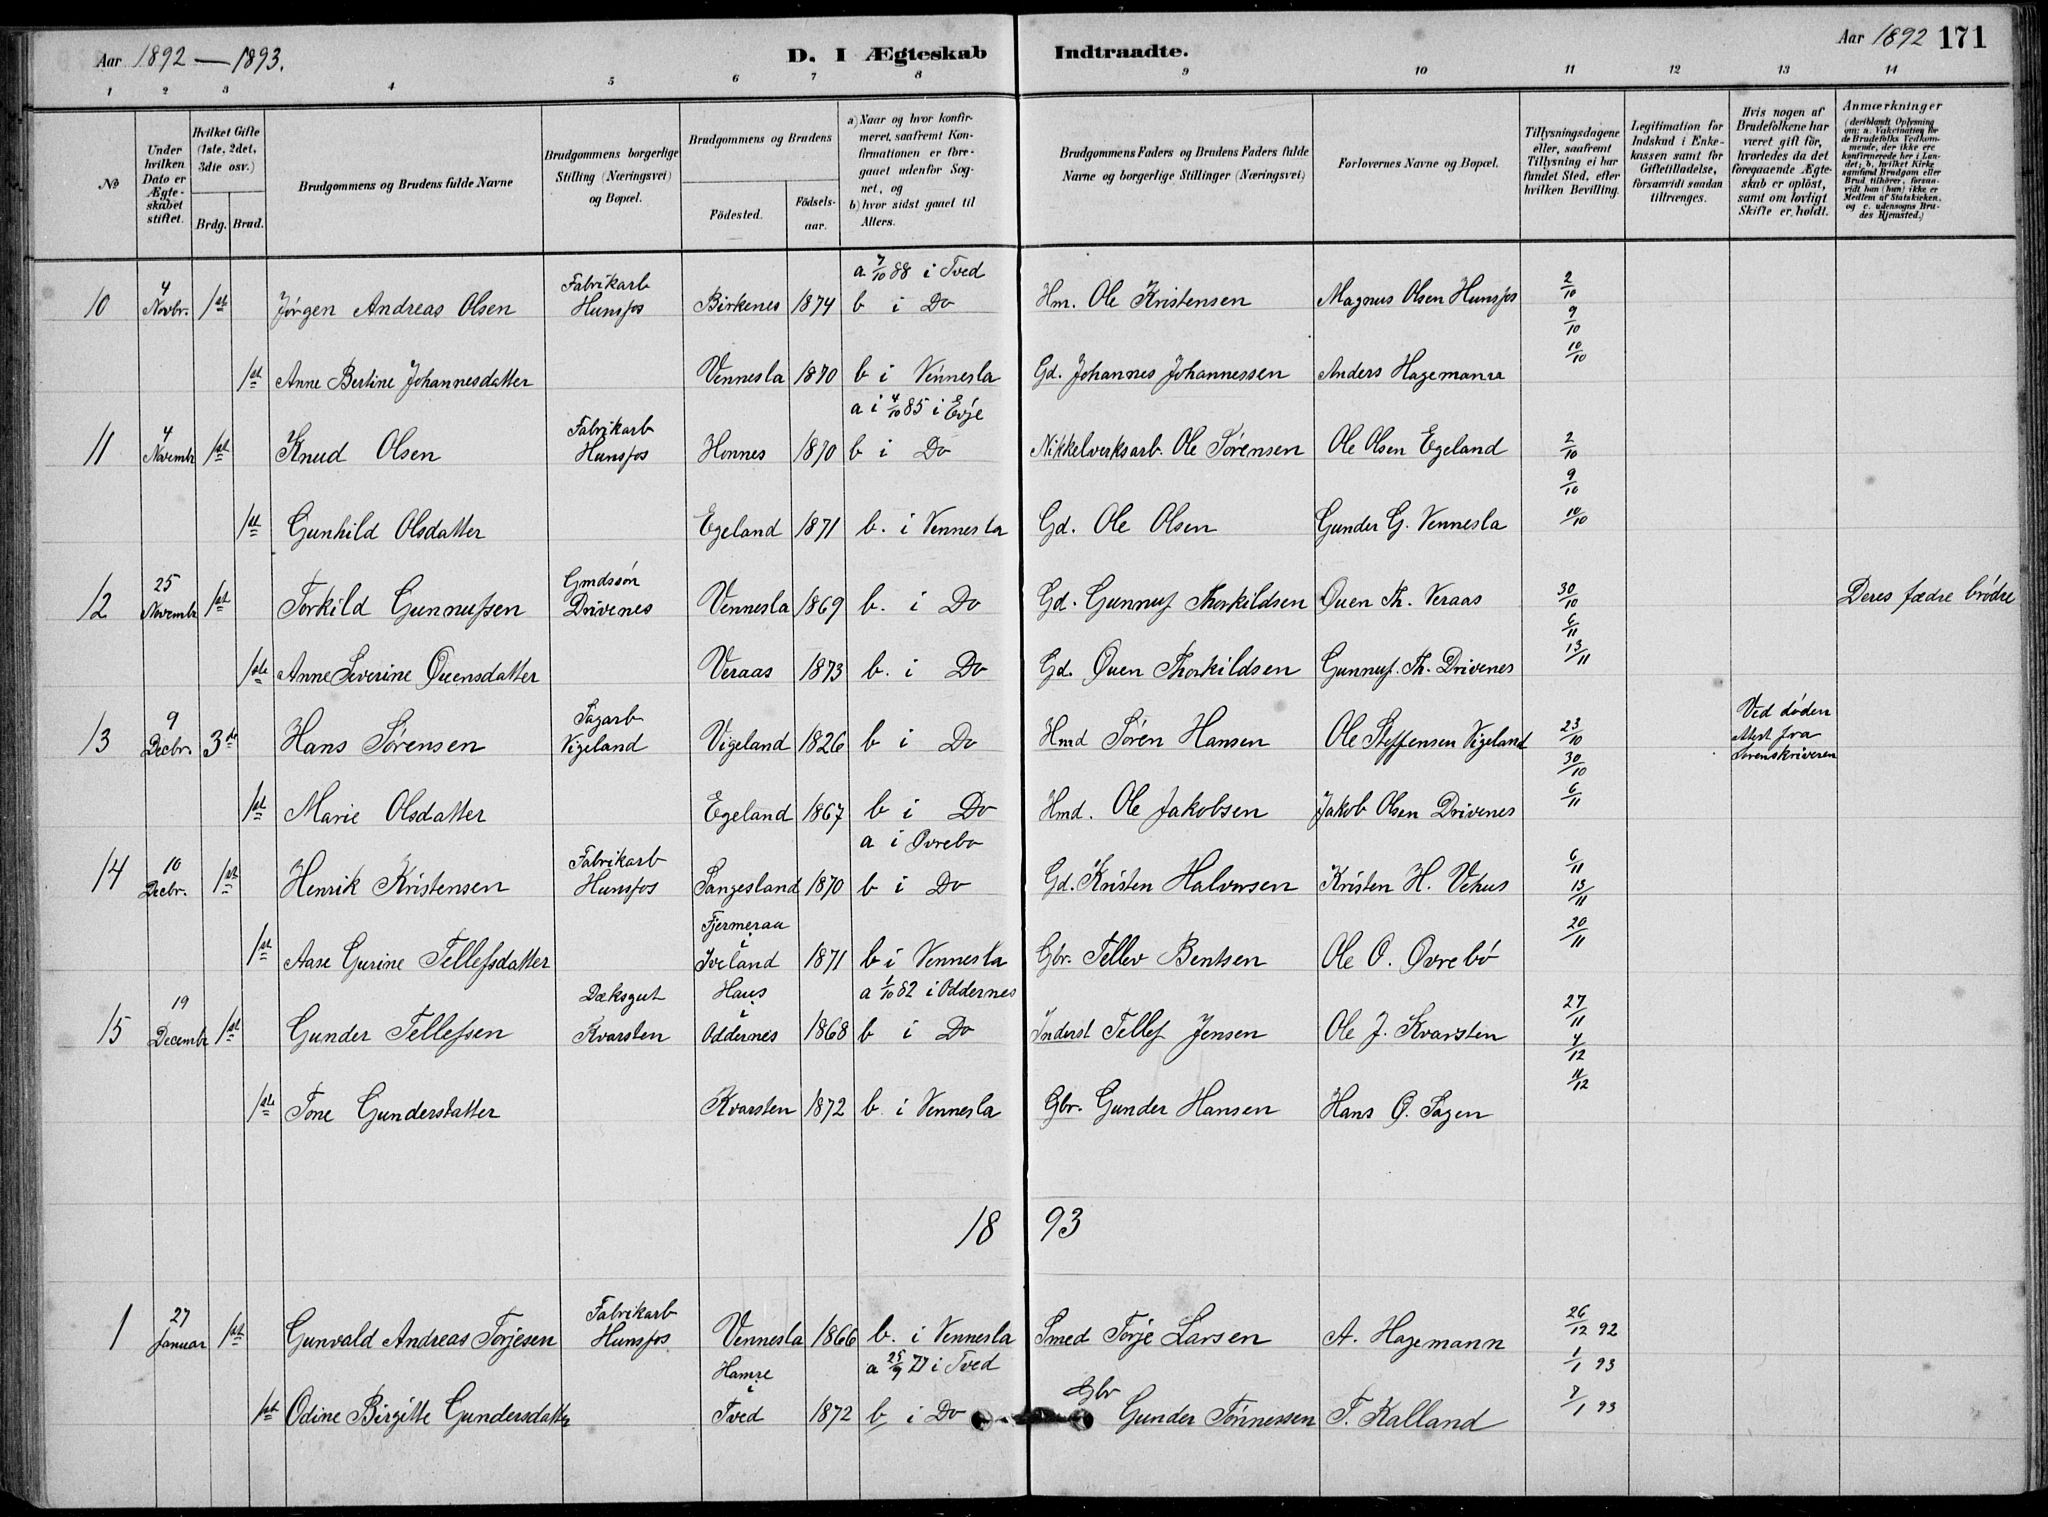 Aar 1892 — 1893. D. I Ægteskab Indtraadte. Aar 1892 171
1 2 3 4 5 6 7 8 9 10 11 12 13 14
No
Under hvilken Dato er Ægteskabet stiftet.
Hvilket Gifte (1ste, 2det, 3die osv.)
Brdg. Brud.
Brudgommens og Brudens fulde Navne
Brudgommens borgerlige Stilling (Næringsvei) og Bopæl.
Brudgommens og Brudens
Födested. Födselsaar.
a) Naar og hvor konfirmeret, saafremt Konfirmationen er foregaaet udenfor Sognet, og
b) hvor sidst gaaet til Alters.
Brudgommens Faders og Brudens Faders fulde Navne og borgerlige Stillinger (Næringsvei)
Forlovernes Navne og Bopæl.
Tillysningsdagene eller, saafremt Tillysning ei har fundet Sted, efter hvilken Bevilling.
Legitimation for Indskud i Enkekassen samt for Giftetilladelse, forsaavidt saadan tiltrænges.
Hvis nogen af Brudefolkene har været gift för, hvorledes da det foregaaende Ægteskab er oplöst, samt om lovligt Skifte er holdt.
Anmærkninger (deriblandt Oplysning om: a. Vakcination for de Brudefolks Vedkommende, der ikke ere konfirmerede her i Landet; b. hvilket Kirkesamfund Brudgom eller Brud tilhörer, forsaavidt han (hun) ikke er Medlem af Statskirken, og c. udensogns Brudes Hjemsted.)
10 4 Novbr. 1st Jørgen Andreas Olsen Fabrikarb Hunsfos Birkenes 1874 a 7/10 88 i Tved b i Do Hm. Ole Kristensen Magnus Olsen Hunsfos 2/10 9/10
1st Anne Bertine Johannesdatter Vennesla 1870 b i Vennesla Gd. Johannes Johannessen Anders Hagemann 10/10
11 4 Novembr 1st Knud Olsen Fabrikarb Hunsfos Honnes 1870 a i 4/10 85 i Evje b i Do Nikkelverksarb. Ole Sørensen Ole Olsen Egeland 2/10 9/10
1st Gunhild Olsdatter Egeland 1871 b. i Vennesla Gd. Ole Olsen Gunder G. Vennesla 10/10
12 25 Novembr 1st Torkild Gunnufsen Gmdssön Drivenes Vennesla 1869 b. i Do Gd. Gunnuf Thorkildsen Ouen Th. Veraas 30/10 6/11 Deres fædre brödre
1ste Anne Severine Ouensdatter Veraas 1873 b. i Do Gd. Ouen Thorkildsen Gunnuf. Th. Drivenes 13/11
13 9 Decbr. 3de Hans Sørensen Sagarb Vigeland Vigeland 1826 b i Do Hmd Søren Hansen Ole Steffensen Vigeland 23/10 30/10 Ved döden Attest fra Sorenskriveren
1st Marie Olsdatter Egeland 1867 b i Do Hmd. Ole Jakobsen Jakob Olsen Drivenes 6/11
14 10 Decbr. 1st Henrik Kristensen Fabrikarb Hunsfos Sangesland 1870 a i Ovrebo b i Do Gd. Kristen Halvorsen Kristen H. Vehus 6/11 13/11
1st Aase Gurine Tellefsdatter Fjermeraa i Iveland 1871 b i Vennesla Gbr. Tellev Bentsen Ole O. Ovrebö 20/11
15 19 Decembr 1st Gunder Tellefsen Dæksgut Kvarsten Haus i Oddernes 1868 a 1/10 82 i Oddernes b i Do Inderst Tellef Jensen Ole J. Kvarsten 27/11 4/12
1ste Tone Gunderstatter Kvarsten 1872 b. i Vennesla Gbr. Gunder Hansen Hans O. Sagen 11/12
18 93
1 27 Januar 1st Gunvald Andreas Torjesen Fabrikarb Hunsfos Vennesla 1866 b. i Vennesla Smed Torje Larsen A. Hagemann 26/12 92 1/1 93
1st Odine Birgitte Gundersdatter Hamre i Tved 1872 a 25/9 77 i Tved b i Do Gbr Gunder Tönnessen T. Kalland 7/1 93